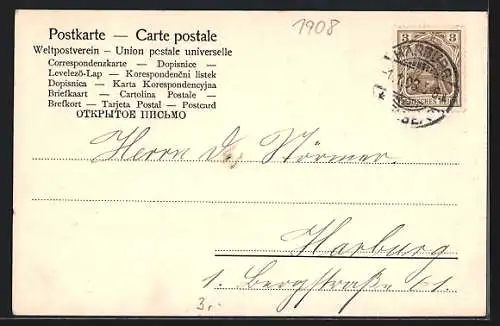 1908
Postkarte — Carte postale
Weltpostverein – Union postale universelle
Correspondenzkarte — Dopisnice —
Levelező-Lap — Korespondenční listek
Dopisnica — Karta Korespondencyjna
Briefkaart — Cartolina Postale —
Brefkort — Tarjeta Postal — Postcard
ОТКРЫТОЕ ПИСЬМО
3 3
HARBURG
Herrn Störmer.
Harburg
1. Bergstraße 61
3.-